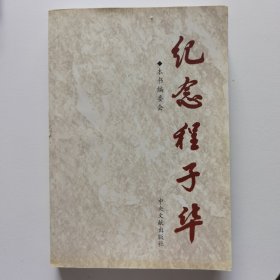 纪念程子华
◆本书编委会
中央文献出版社